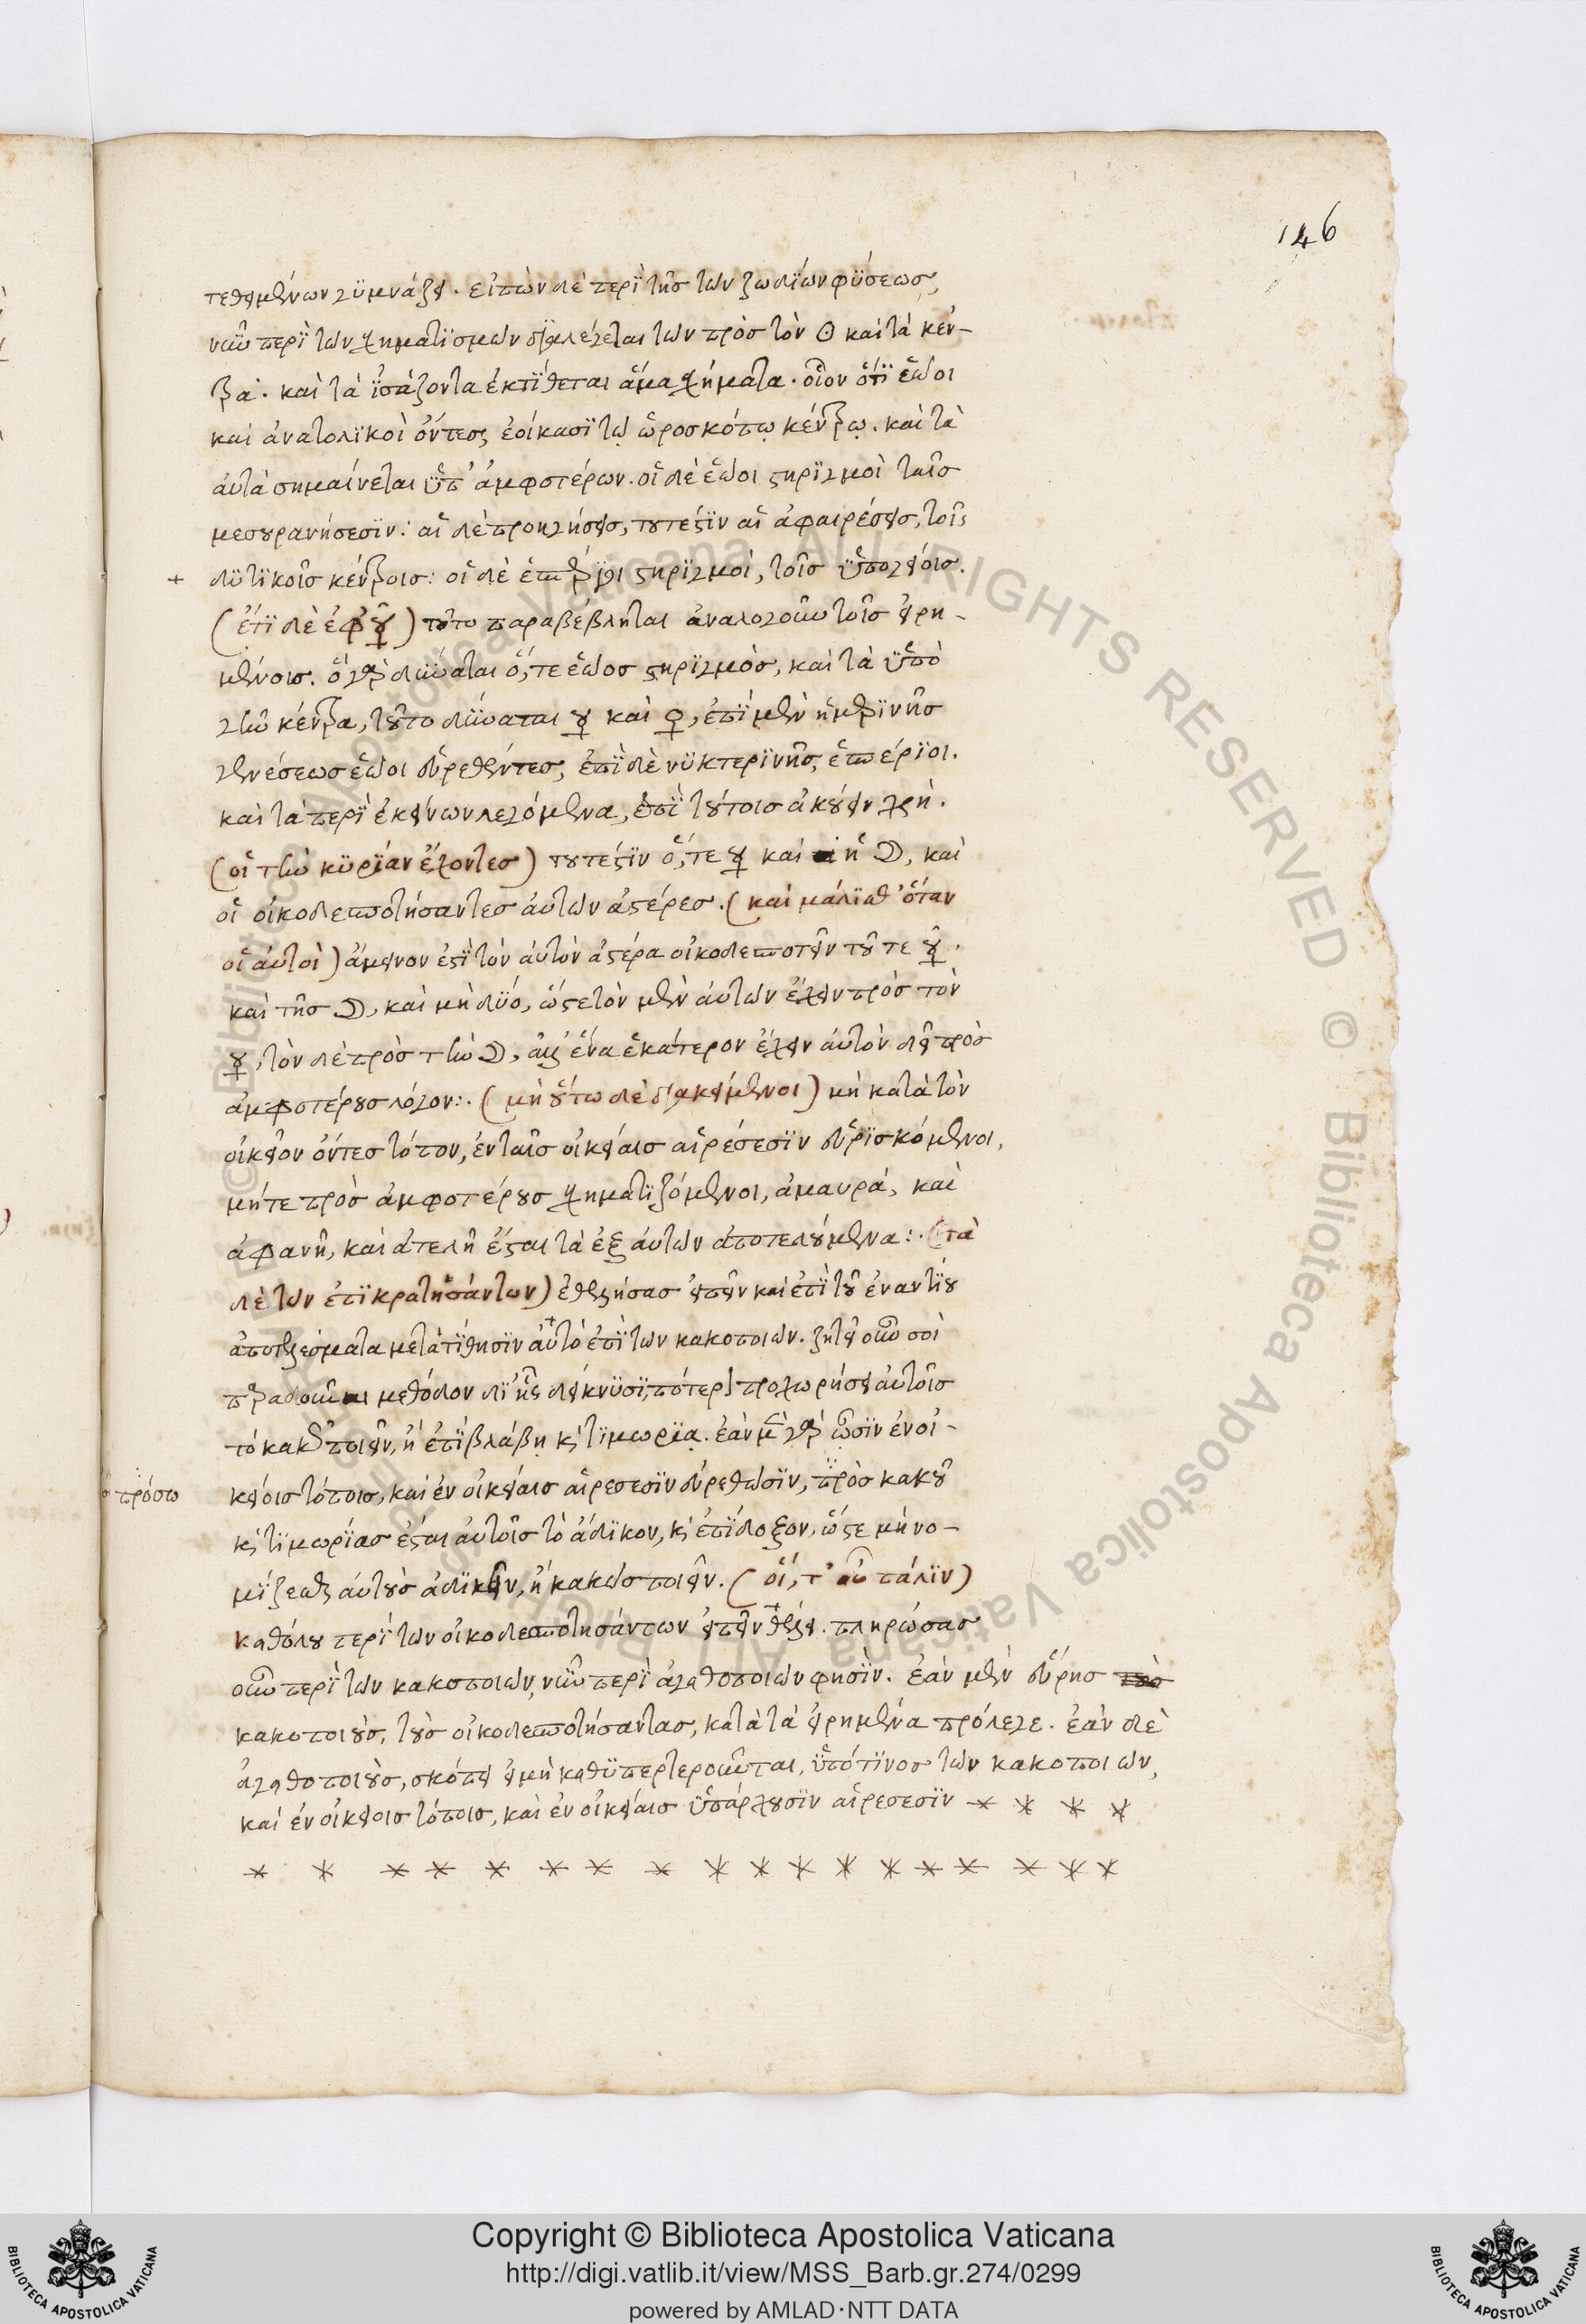 146
τεθειμένων γϋμνάζει. εἰπὼν δὲ περϊ τῆς τῶν ζωδϊων φϋσεως,
νῦν περϊ τῶν σχηματϊσμῶν διαλέγεται τῶν πρὸς τὸν ☉ καὶ τὰ κέν-
τρα. καὶ τὰ ϊσάζοντα ἐκτϊθεται ἅμα σχήματα. οἷον ὅτϊ ἑῷοι
καὶ ἀνατολϊκοὶ ὄντες, ἐοίκασϊ τῷ ὡροσκόπῳ κέντρῳ. καὶ τὰ
αὐτὰ σημαίνεται ϋπ' ἀμφοτέρων. οἱ δὲ ἑῷοι στηρϊγμοὶ ταῖς
μεσουρανήσεσϊν: αἱ δὲ προηγήσεις, τουτέστϊν αἱ ἀφαιρέσεις, τοῖς
+ δϋτϊκοῖς κέντροις: οἱ δὲ ἑσπέρϊοι στηρϊγμοὶ, τοῖς ϋπογείοις.
(ἔτϊ δὲ ἐφ' ☿) τοῦτο παραβέβληται ἀναλογοῦν τοῖς εἰρη-
μένοις. ὃ γὰρ δϋναται ὅ, τε ἑῷος στηρϊγμὸς, καὶ τὰ ϋπὸ
γῆν κέντρα, τοῦτο δϋναται ☿ καὶ ♀, ἐπϊ μὲν ἡμερϊνῆς
γενέσεως ἑῷοι εὑρεθέντες, ἐπϊ δὲ νϋκτερϊνῆς, ἑσπέρϊοι.
καὶ τὰ περϊ ἐκείνων λεγόμενα, ἐπϊ τούτοις ἀκούειν χρή.
(οἱ τὴν κϋρϊαν ἔχοντες) τουτέστϊν ὅ, τε ☿ καὶ ἡ ☽, καὶ
οἱ οἰκοδεσποτήσαντες αὐτῶν ἀστέρες. (καὶ μάλϊσθ' ὅταν
οἱ αὐτοὶ) ἄμεινον ἐστϊ τὸν αὐτὸν ἀστέρα οἰκοδεσποτεῖν τοῦ τε ☿.
καὶ τῆς ☽, καὶ μὴ δϋο, ὥστε τὸν μὲν αὐτῶν ἔχειν πρὸς τὸν
☿, τὸν δὲ πρὸς τὴν ☽, ἀλλ' ἕνα ἑκάτερον ἔχειν αὐτὸν δεῖ πρὸς
ἀμφοτέρους λόγον:. (μὴ οὕτω δὲ διακείμενοι) μὴ κατὰ τὸν
οἰκεῖον ὄντες τόπον, ἐν ταῖς οἰκείαις αἱρέσεσϊν εὑρϊσκόμενοι,
μήτε πρὸς ἀμφοτέρους σχηματϊζόμενοι, ἀμαυρὰ, καὶ
ἀφανῆ, καὶ ἀτελῆ ἔσται τὰ ἐξ αὐτῶν ἀποτελούμενα:. (τὰ
δὲ τῶν ἐπϊκρατησάντων) ἐθελήσας εἰπεῖν καὶ ἐπϊ τοῦ ἐναντϊου
ἀποτελέσματα μετατϊθησϊν αὐτὸ ἐπϊ τῶν κακοποιῶν. ζητεῖ οὖν σοὶ
παραδοῦναι μεθόδον δϊ' ἧς δείκνϋσϊ, πότερον προχωρήσει αὐτοῖς
τὸ κακὸν ποιεῖν, ἢ ἐπϊ βλάβῃ κ τϊμωρϊᾳ. ἐὰν μὲν γὰρ ὦσϊν ἐν οἰ-
πρόσω κείοις τόποις, καὶ ἐν οἰκείαις αἱρέσεσϊν εὑρεθῶσϊν, πρὸς κακοῦ
κ τϊμωρϊας ἔσται αὐτοῖς τὸ ἄδϊκον, κ ἐπϊδοξον, ὥστε μὴ νο-
μϊζεσθαι αὐτοὺς ἀδϊκεῖν, ἢ κακῶς ποιεῖν. (οἵ, τ' οὖν πάλϊν)
καθόλου περϊ τῶν οἰκοδεσποτησάντων εἰπεῖν θέλει. πληρώσας
οὖν περϊ τῶν κακοποιῶν, νῦν περϊ ἀγαθοποιῶν φησϊν. ἐὰν μὲν εὕρῃς
κακοποιοὺς, τοὺς οἰκοδεσποτήσαντας, κατὰ τὰ εἰρημένα πρόλεγε. ἐὰν δὲ
ἀγαθοποιοὺς, σκόπει εἰ μὴ καθϋπερτεροῦνται, ϋπό τϊνος τῶν κακοποιῶν,
καὶ ἐν οἰκείοις τόποις, καὶ ἐν οἰκείαις ϋπάρχουσϊν αἱρέσεσϊν * * * *
* * * * * * * * * * * * * * * * * *
© Biblioteca Apostolica Vaticana ALL RIGHTS RESERVED © Biblioteca Apostolica Vaticana ALL RIGHTS RESERVED
BIBLIOTECA APOSTOLICA VATICANA
Copyright © Biblioteca Apostolica Vaticana
http://digi.vatlib.it/view/MSS_Barb.gr.274/0299
powered by AMLAD·NTT DATA
BIBLIOTECA APOSTOLICA VATICANA